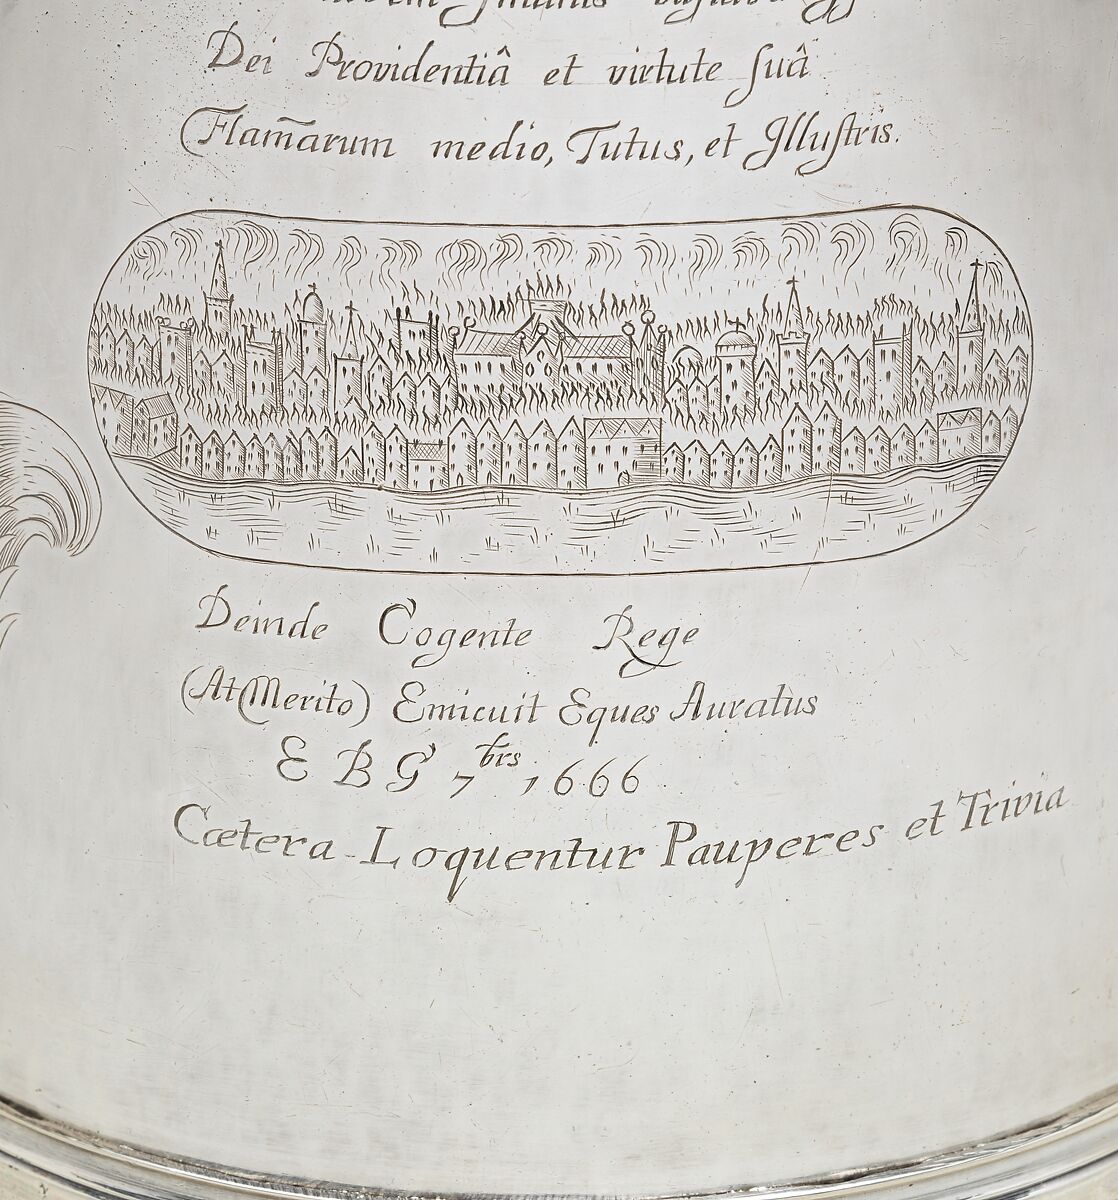 Dei Providentiâ et virtute ſuâ
Flam̃arum medio, Tutus, et Jlluſtris.
Deinde Cogente Rege
(At Merito) Emicuit Eques Auratus
E B G 7brs 1666
Cœtera Loquentur Pauperes et Trivia